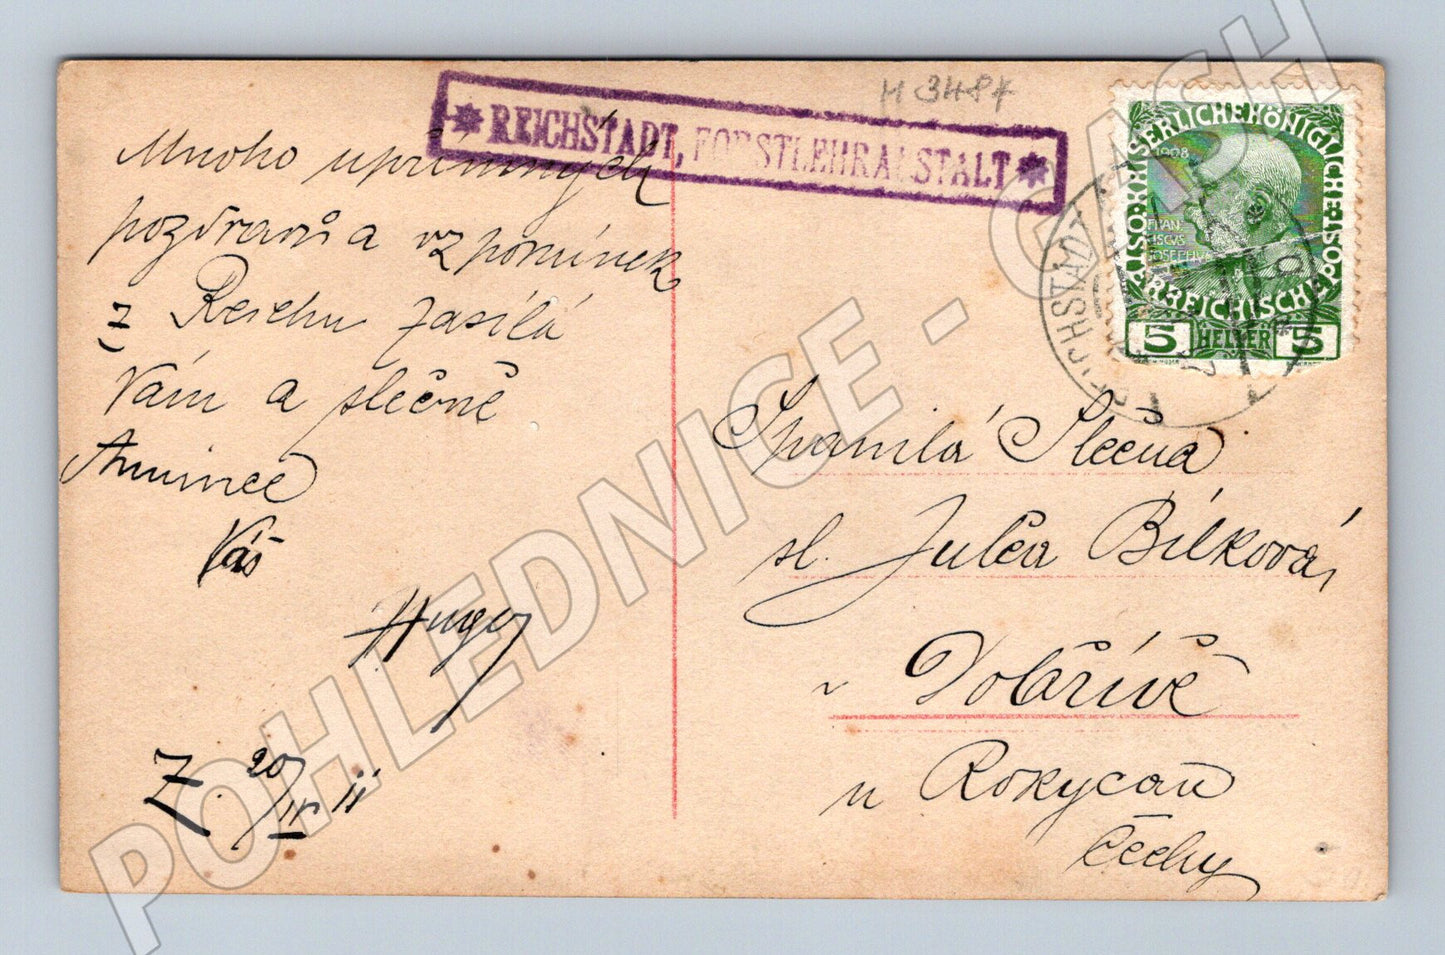 M 3487
* REICHSTADT, FORSTLEHRANSTALT *
Mnoho upřímných
pozdravů a vzpomínek
z Reichu zasílá
Vám a slečně
Anmince
Váš
Hugo
Z. 20/IV 11
KAISERLICHE KÖNIGLICHE
ÖSTERREICHISCHE POST
1908
FRAN
CISCVS
IOSEPHVS
5 HELLER 5
REICHSTADT
Spanilá Slečna
sl. Julča Bílková,
v Dobřívě
u Rokycan
Čechy
POHLEDNICE - GASH